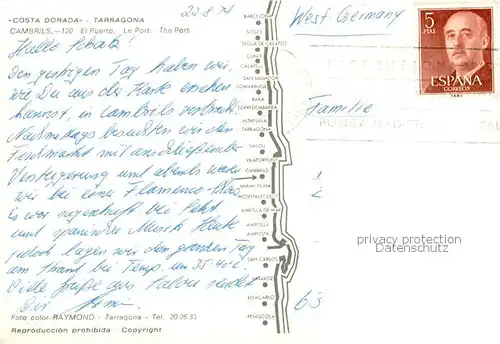 «COSTA DORADA» - TARRAGONA
CAMBRILS.—120 El Puerto. Le Port. The Port.
22.8.71
West-Germany
5
PTAS
ESPAÑA
CORREOS
Hallo Schatz!
Den gestrigen Tag haben wir,
wie Du aus der Karte ersehen
kannst, in Cambrils verbracht.
Nachmittags besuchten wir den
Fischmarkt mit anschließender
Versteigerung und abends waren
wir bei einer Flamenco-Show
Es war sagenhaft bei Sekt
und spanischer Musik. Heute
jedoch lagen wir den ganzen Tag
am Strand bei Temp. um 35-40°C.
Viele Grüße aus Salou sendet
Dir
Familie
63
BARCELONA
SITGES
SEGUR DE CALAFELL
CUNIT
CALAFELL
SAN SALVADOR
COMARRUGA
BARA
TORREDEMBARRA
ALTAFULLA
TARRAGONA
SALOU
VILAFORTUNY
CAMBRILS
MIAMI PLAYA
HOSPITALET
AMETLLA DE MAR
AMPOLLA
AMPOSTA
SAN CARLOS
VINAROZ
BENICARLO
PEÑISCOLA
Foto color RAYMOND - Tarragona - Tel. 20 26 33
Reproducción prohibida - Copyright.
privacy protection
Datenschutz